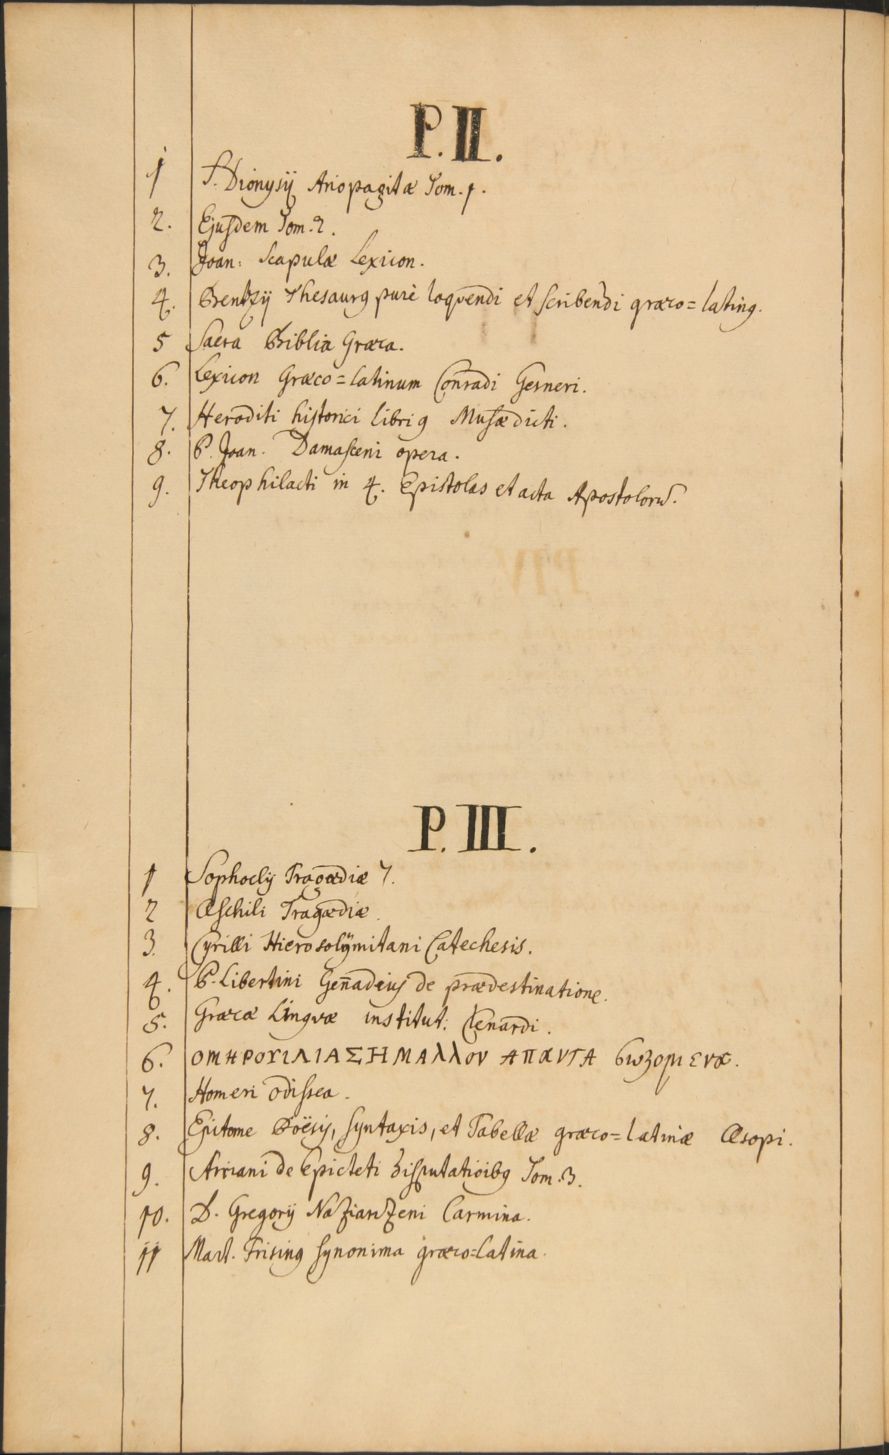 P. II.
1 S. Dionysij Ariopagitæ Tom. 1.
2. Ejusdem Tom. 2.
3. Joan: Scapulæ Lexicon.
4. Brentzij Thesaurg purè loquendi et scribendi græco=lating.
5 Sacra Biblia Græca.
6. Lexicon Græco=latinum Conradi Gesneri.
7. Heroditi historici libri 9 Musæ dicti.
8. P. Joan. Damasceni opera.
9. Theophilacti in 4. Epistolas et acta Apostolorū.
P. III.
1 Sophoclij Tragœdiæ 7.
2 Æschili Tragœdiæ.
3. Cyrilli Hierosolÿmitani Catechesis.
4. P. Libertini Gen̄adeius de prædestinatione.
5. Græcæ Linguæ institut: Clenardi.
6. ΟΜΗΡΟΥ ΙΛΙΑΣ Η ΜΑλλΟΝ ΑΠΑΝΤΑ ϭωζομενα.
7. Homeri odissea.
8. Epitome Poësis, syntaxis, et Tabellæ græco=latinæ Æsopi.
9. Arriani de Epicteti Disputatioībg Tom. 3.
10. D. Gregorij Nazianzeni Carmina.
11 Mart. Frising synonima græco=latina.